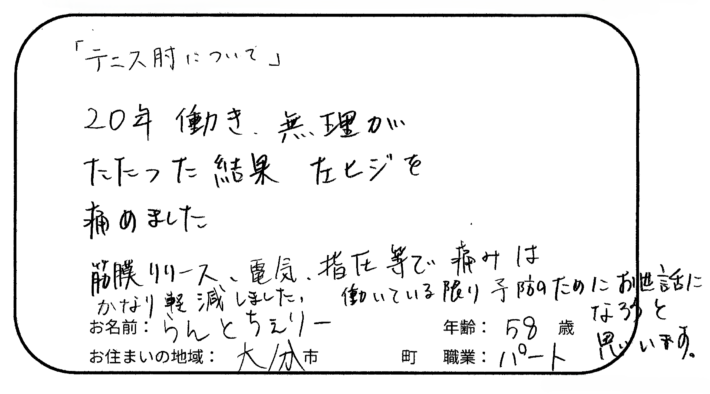 「テニス肘について」
20年働き、無理が
たたった結果 左ヒジを
痛めました
筋膜リリース、電気、指圧等で痛みは
かなり軽減しました。働いている限り予防のためにお世話に
なろうと
思います。
お名前： らんとちぇりー 年齢： 58 歳
お住まいの地域： 大分市 町 職業： パート